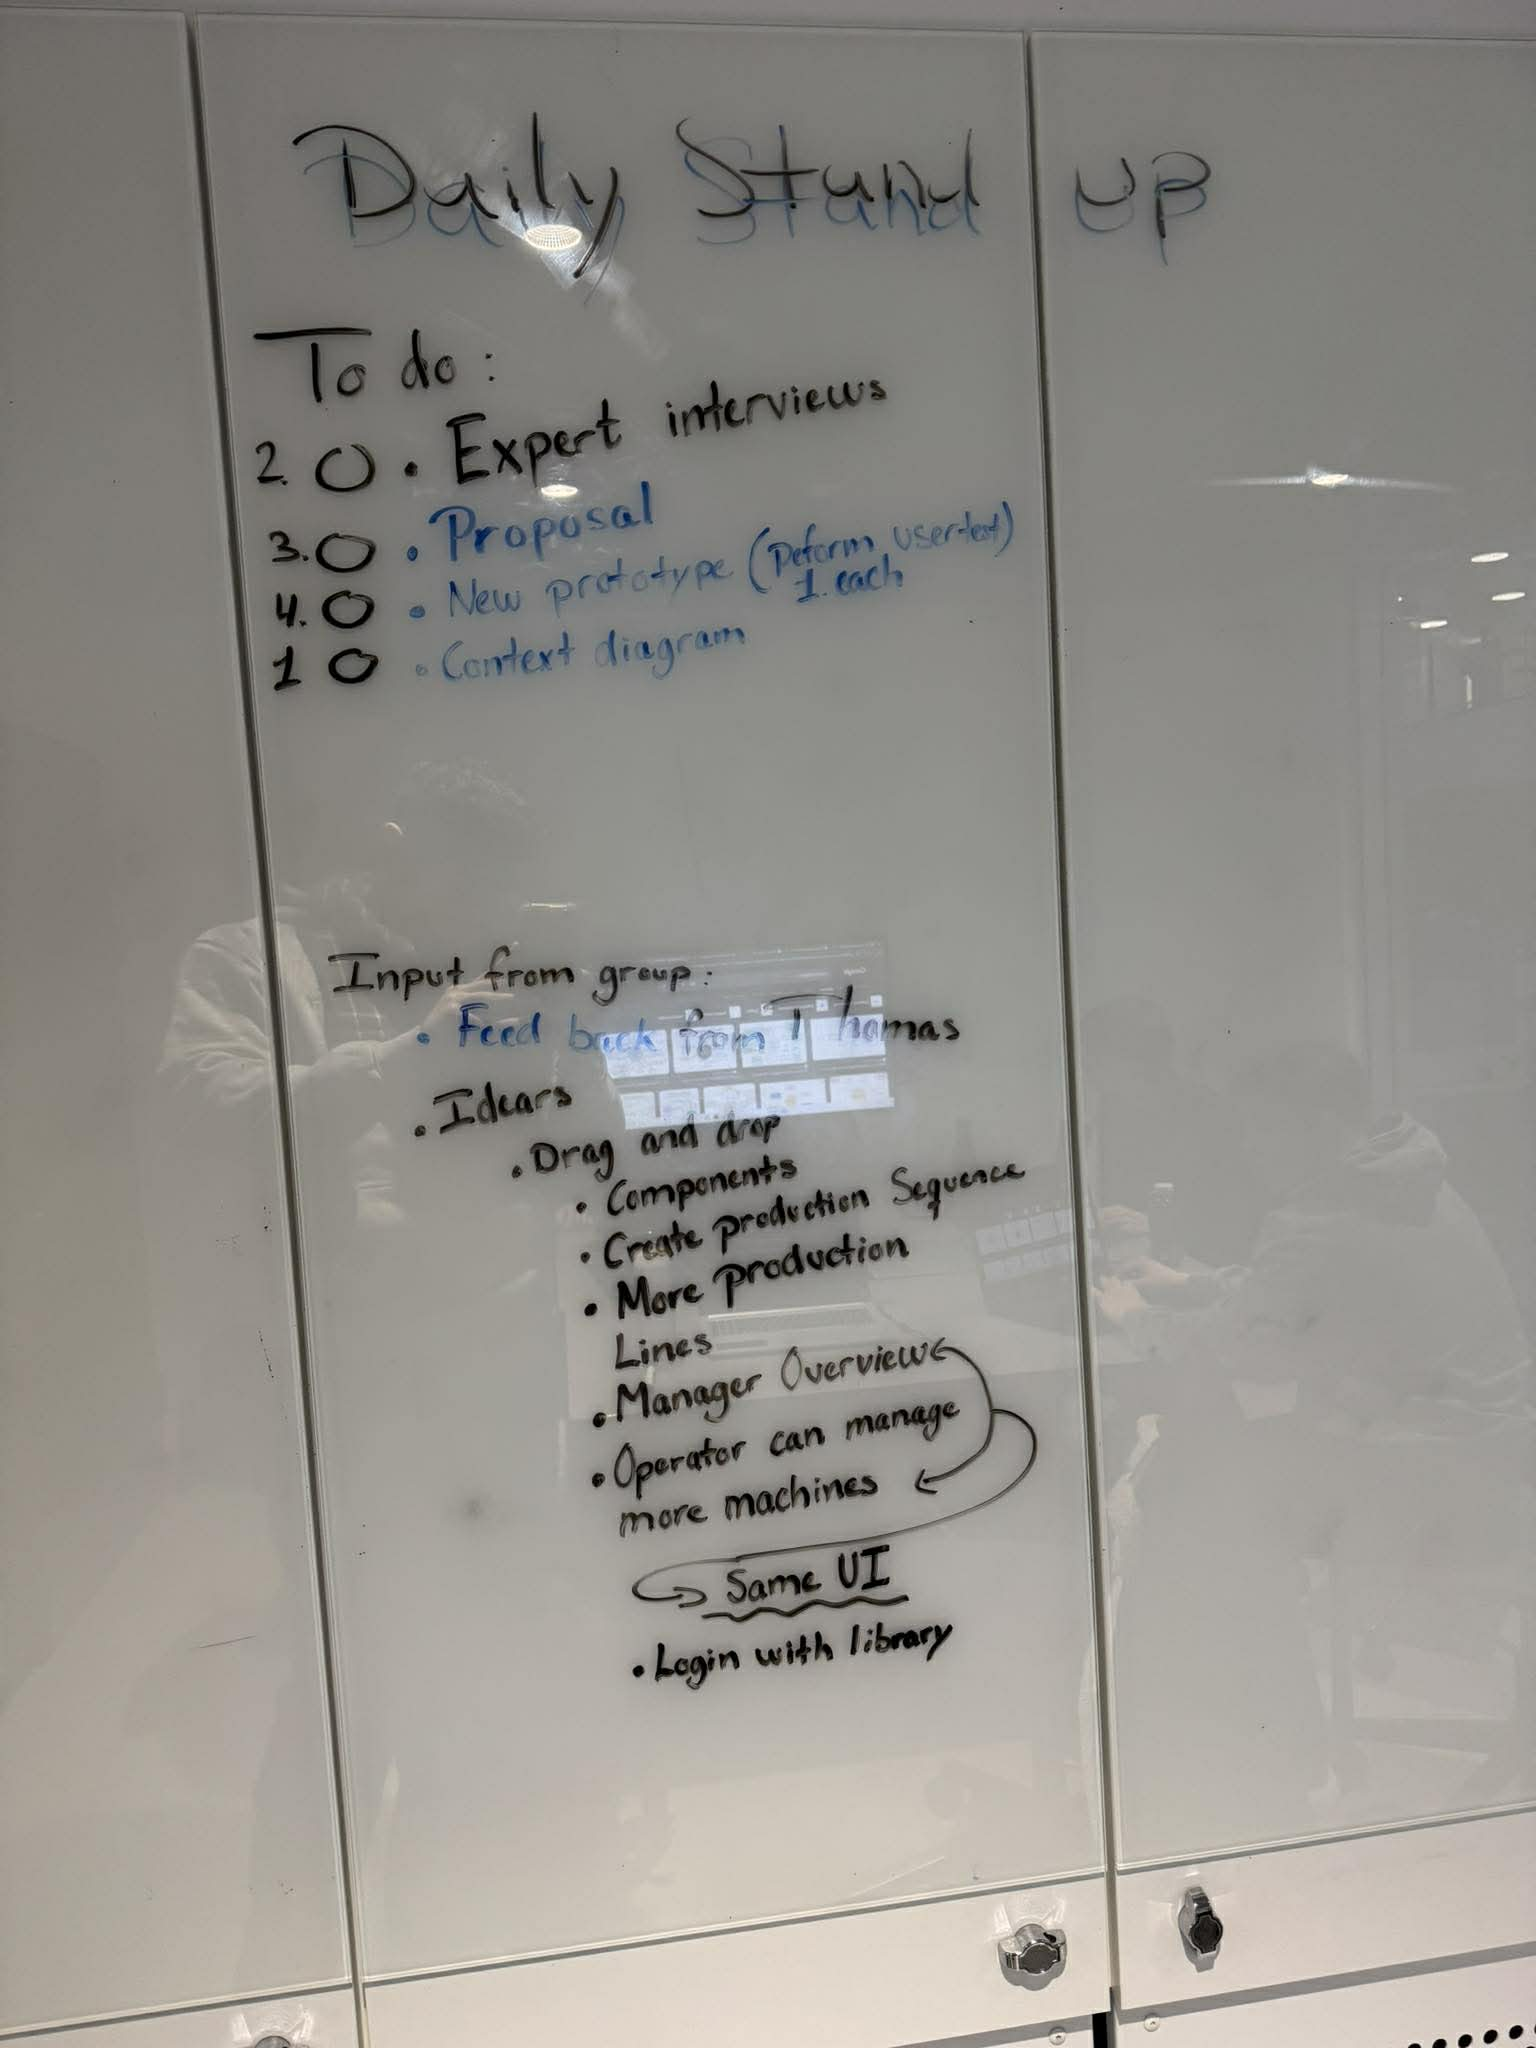 Daily Stand up
To do:
2. O • Expert interviews
3. O • Proposal
4. O • New prototype (Peform usertest)
1. each
1 O • Context diagram
Input from group:
• Feed back from Thomas
• Idears
• Drag and drop
• Components
• Create production Sequence
• More production
Lines
• Manager Overview
• Operator can manage
more machines
Same UI
• Login with library